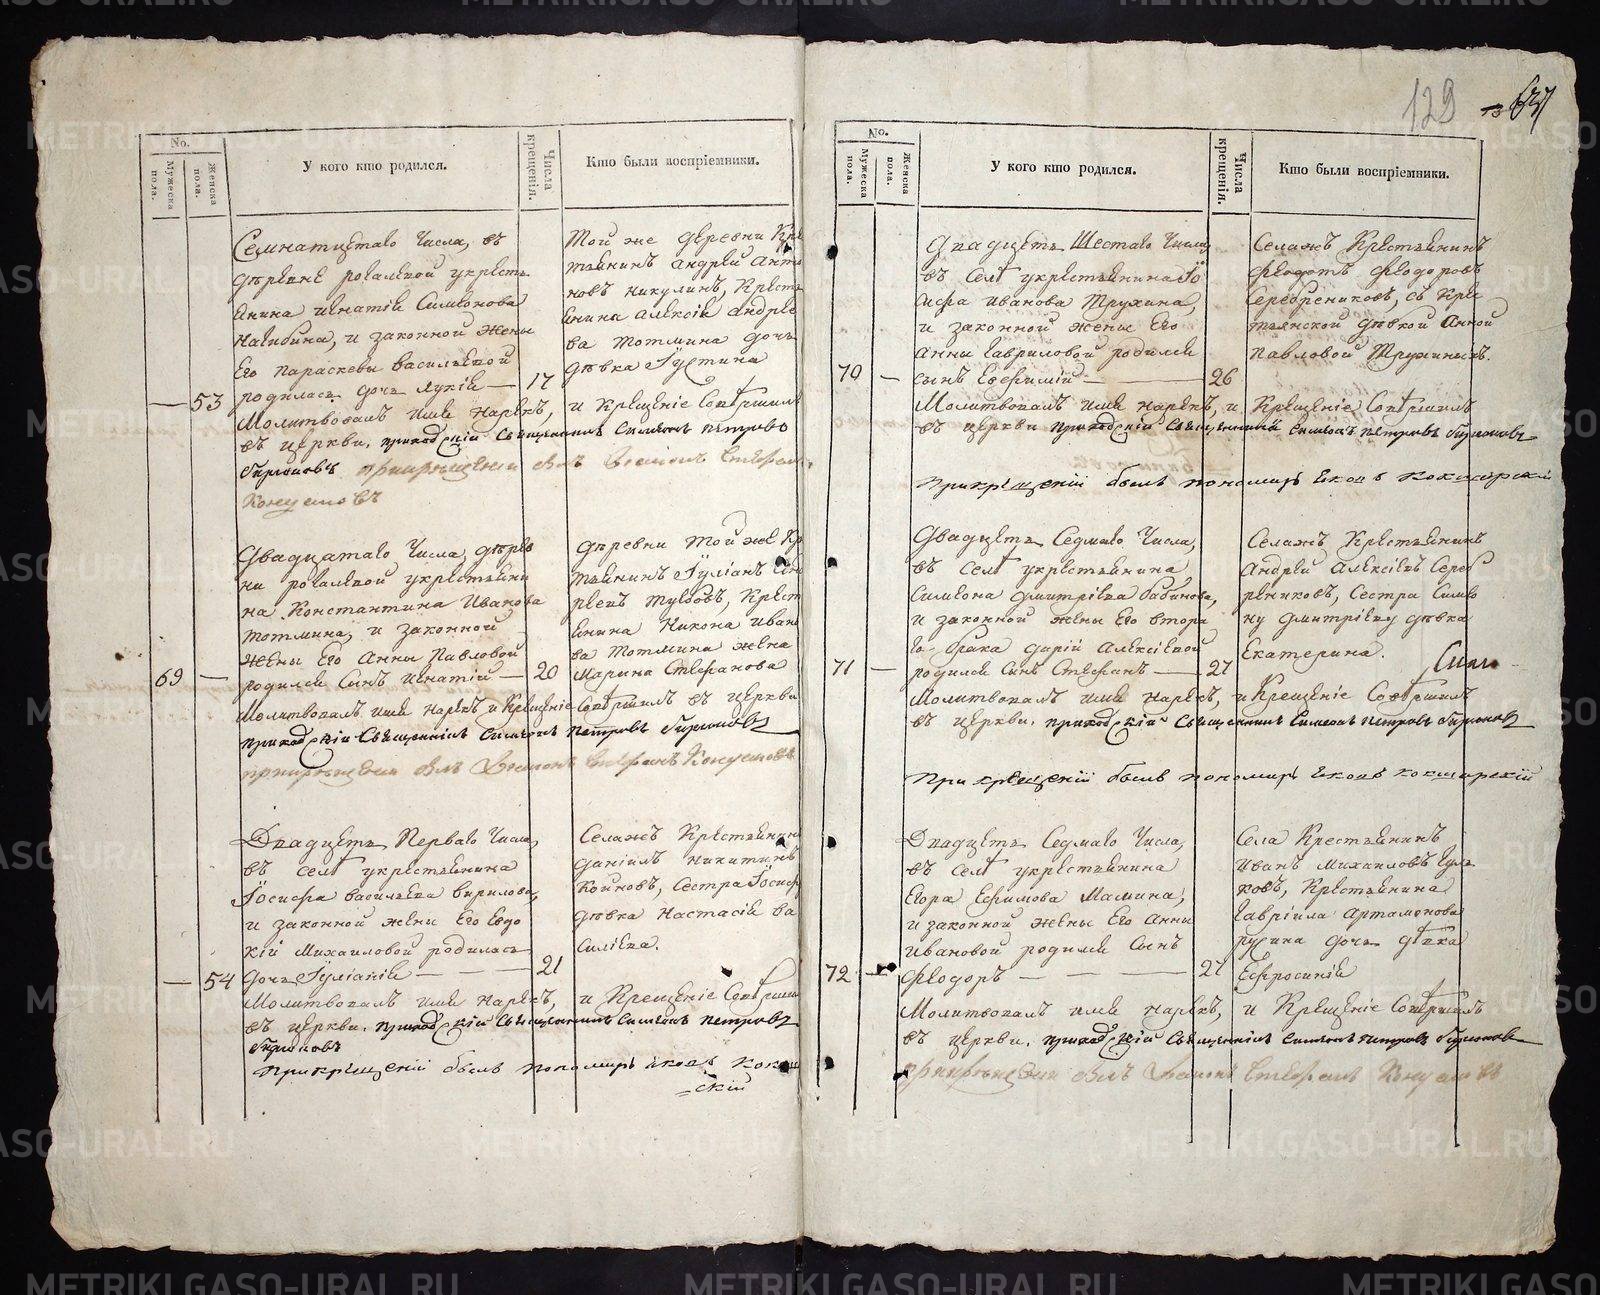 129
No.
Мужеска пола.
Женска пола.
У кого кто родился.
Числа крещенія.
Кто были воспріемники.
Семнатцетаго Числа, въ
дѣревнѣ
Анина Игнатія Симионова
и законной жены
Его Параскевы Васильевой
53
родилась дочь Лукія — 17
Молитвовалъ имя нарекъ,
въ церкви. приходскій Священникъ Симеонъ Петровъ
Той же деревни Кре
тьянинъ Андрей Анто
новъ Никулинъ, Крестья
Анина Алексія Андрее
ва Тотмина дочь
дѣвка Іустина
и Крещеніе Совѣршилъ
Двадцатаго Числа, дѣрев
ни
на Константина Иванова
Тотмина, и законной
жены Его Анны Павловой
69 —
родился Сынъ Игнатій — 20
Молитвовалъ имя нарекъ и Крещеніе Совѣршилъ въ церкви
приходскій Священникъ Симеонъ Петровъ
деревни той же Кр
тьянинъ Іуліанъ
Крест
Анина Никона Иван
ва Тотмина жена
Марина Стефанова
Двадцеть Перваго Числа,
въ селѣ укрестьянина
Іосифа Васильева
и законной жены Его Евдо
кіи Михаиловой родилась
— 54
дочь Іуліанія — — — 21
Молитвовалъ имя нарекъ, и Крещеніе Совѣрши
въ церкви. приходскій Священникъ Симеонъ Петровъ
Прикрещеніи былъ пономарь Іковъ
скій
Селажъ Крестьянин
Даніилъ Никитинъ
Койновъ, Сестра Іосиф
дѣвка Настасія Ва
силіева.
No.
Мужеска пола.
Женска пола.
У кого кто родился.
Числа крещенія.
Кто были воспріемники.
Двадцеть Шестаго Числа
въ Селѣ укрестьянина Іо
сифа Иванова Трухина,
и законной жены Его
Анны Гавриловой родился
70 —
сынъ Евфимій — — 26
Молитвовалъ имя нарекъ, и Крещеніе Совѣршилъ
въ церкви приходскій Священникъ Симеонъ Петровъ
Прикрещеніи былъ пономарь Іковъ Кокшарскій
Селажъ Крестьянинъ
Феодотъ Феодоровъ
Серебрениковъ, съ Кре
тьянской дѣвкой Анной
Павловой Трухиныхъ.
Двадцеть Седмаго Числа,
въ селѣ укрестьянина
Симеона Дмитріева Бабинова,
и законной жены Его втора
го брака Даріи Алексіевой
71 —
родился сынъ Стефанъ — 27
Молитвовалъ имя нарекъ, и Крещеніе Совѣршилъ
въ церкви. приходскій Священникъ Симеонъ Петровъ
При крещеніи былъ пономарь Іковъ Кокшарскій
Селажъ Крестьянинъ
Андрей Алексіевъ Сереб
рениковъ, Сестра Симео
ну Дмитріеву дѣвка
Екатерина.
Двадцеть Седмаго Числа,
въ селѣ укрестьянина
Егора Ефимова Мамина,
и законной жены Его Анны
Ивановой родился Сынъ
72 —
Феодоръ — — — 27
Молитвовалъ имя нарекъ, и Крещеніе Совѣршилъ
въ церкви. приходскій Священникъ Симеонъ Петровъ
Села Крестьянинъ
Иванъ Михаиловъ Гуль
ковъ, Крестьянина
Гавріила Артамонова
дочь дѣвка
Ефросинія
METRIKI.GASO-URAL.RU